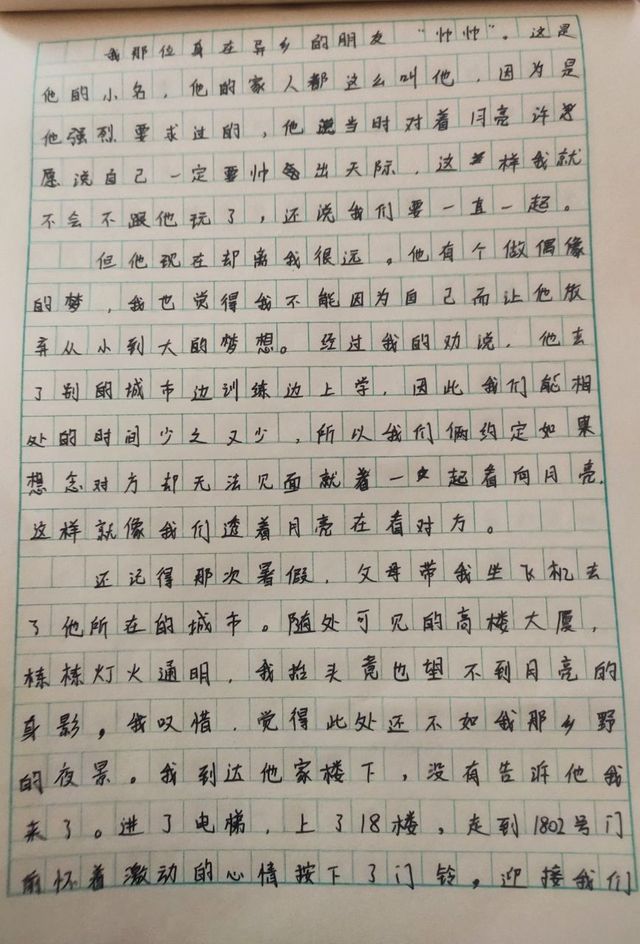 我那位身在异乡的朋友“帅帅”。这是
他的小名，他的家人都这么叫他，因为是
他强烈要求过的，他当时对着月亮许
愿说自己一定要帅出天际，这样我就
不会不跟他玩了，还说我们要一直一起。
但他现在却离我很远。他有个做偶像
的梦，我也觉得我不能因为自己而让他放
弃从小到大的梦想。经过我的劝说，他去
了别的城市边训练边上学，因此我们能相
处的时间少之又少，所以我们俩约定如果
想念对方却无法见面就着一起看向月亮，
这样就像我们透着月亮在看对方。
还记得那次暑假，父母带我坐飞机去
了他所在的城市。随处可见的高楼大厦，
栋栋灯火通明，我抬头竟也望不到月亮的
身影。我叹惜，觉得此处还不如我那乡野
的夜景。我到达他家楼下，没有告诉他我
来了。进了电梯，上了18楼，走到1802号门
前怀着激动的心情按下了门铃。迎接我们